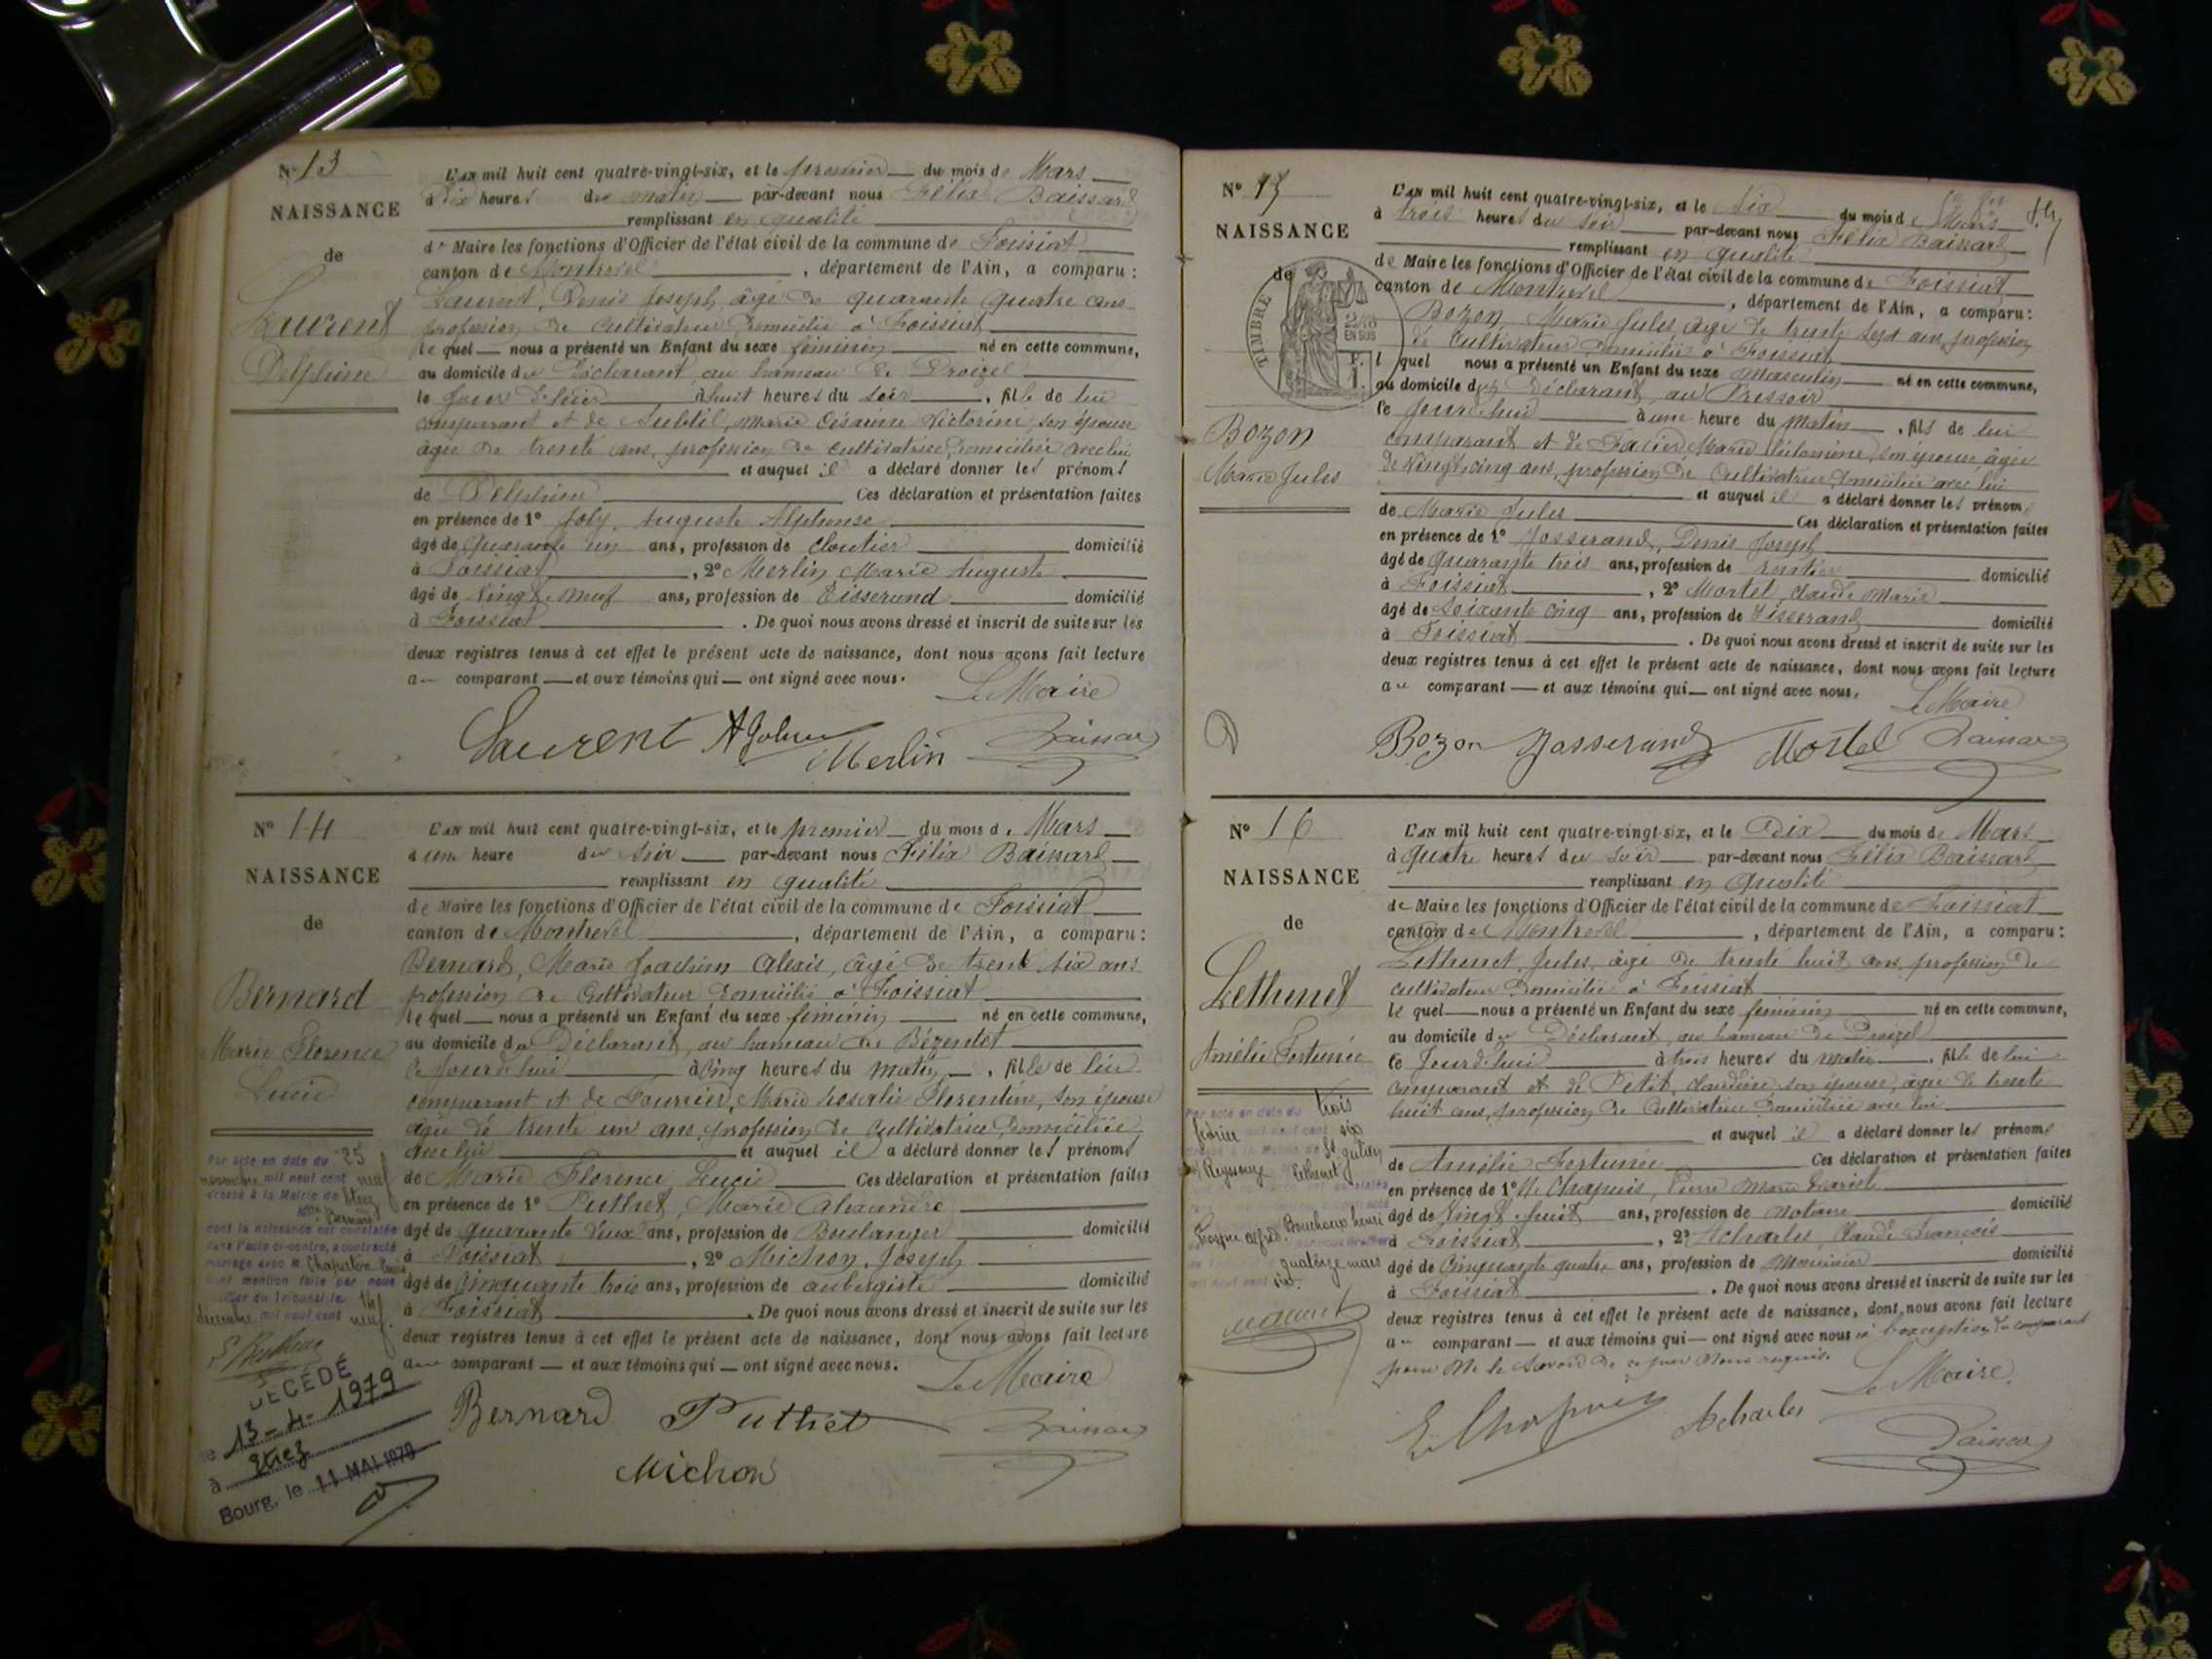 N° 13
NAISSANCE
de
Laurent
Delphine
L'AN mil huit cent quatre-vingt-six, et le premier du mois de Mars
à dix heures du matin par-devant nous Félix Baissard
remplissant en qualité
de Maire les fonctions d'Officier de l'état civil de la commune de Foissiat
canton de Montrevel, département de l'Ain, a comparu :
Laurent, Denis Joseph, âgé de quarante quatre ans
profession de Cultivateur domicilié à Foissiat
le quel nous a présenté un Enfant du sexe féminin né en cette commune,
au domicile du Déclarant, au hameau de Broizel
le jour d'hier à huit heures du soir, fille de lui
comparant et de Subtil, Marie Césarine Victorine, son épouse
âgée de trente ans, profession de cultivatrice, domiciliée avec lui
et auquel il a déclaré donner les prénoms
de Delphine Ces déclaration et présentation faites
en présence de 1° Joly, Auguste Alphonse
âgé de Quarante un ans, profession de Cloutier domicilié
à Foissiat, 2° Merlin Marie Auguste
âgé de Vingt-neuf ans, profession de Tisserand domicilié
à Foissiat. De quoi nous avons dressé et inscrit de suite sur les
deux registres tenus à cet effet le présent acte de naissance, dont nous avons fait lecture
au comparant et aux témoins qui ont signé avec nous.
Le Maire
Laurent Merlin
N° 14
NAISSANCE
de
Bernard
Marie Florence
Lucie
Par acte en date du 25
novembre mil neuf cent neuf
dressé à la Mairie de
Bernard
dont la naissance est constatée
dans l'acte ci-contre, a contracté
mariage avec M. Chapelon
Dont mention faite par nous
décembre mil neuf cent neuf.
DÉCÉDÉ
le 13-4-1979
à
Bourg, le 11 MAI 1979
L'AN mil huit cent quatre-vingt-six, et le premier du mois de Mars
à une heure du soir par-devant nous Félix Baissard
remplissant en qualité
de Maire les fonctions d'Officier de l'état civil de la commune de Foissiat
canton de Montrevel, département de l'Ain, a comparu :
Bernard, Marie Joachim Alexis, âgé de trente six ans
profession de Cultivateur domicilié à Foissiat
le quel nous a présenté un Enfant du sexe féminin né en cette commune,
au domicile du Déclarant, au hameau de Bézentet
ce jourd'hui à cinq heures du matin, fille de lui
comparant et de Fournier, Marie Rosalie Florentine, son épouse
âgée de trente un ans, profession de Cultivatrice, domiciliée
avec lui et auquel il a déclaré donner les prénoms
de Marie Florence Lucie Ces déclaration et présentation faites
en présence de 1° Puthet, Marie Alexandre
âgé de quarante deux ans, profession de Boulanger domicilié
à Foissiat, 2° Michon, Joseph
âgé de Cinquante trois ans, profession de aubergiste domicilié
à Foissiat. De quoi nous avons dressé et inscrit de suite sur les
deux registres tenus à cet effet le présent acte de naissance, dont nous avons fait lecture
au comparant et aux témoins qui ont signé avec nous.
Le Maire
Bernard Puthet
Michon
N° 15
NAISSANCE
de
TIMBRE
2/10
EN SUS
Bozon
Marie Jules
D
L'AN mil huit cent quatre-vingt-six, et le six du mois de Mars
à trois heures du soir par-devant nous Félix Baissard
remplissant en qualité
de Maire les fonctions d'Officier de l'état civil de la commune de Foissiat
canton de Montrevel, département de l'Ain, a comparu :
Bozon Marie Jules âgé de trente sept ans, profession
de Cultivateur domicilié à Foissiat
l quel nous a présenté un Enfant du sexe Masculin né en cette commune,
au domicile du Déclarant, au Pressoir
ce jourd'hui à une heure du matin, fils de lui
comparant et de Marie son épouse âgée
de Vingt cinq ans, profession de Cultivatrice, domiciliée avec lui
et auquel il a déclaré donner les prénoms
de Marie Jules Ces déclaration et présentation faites
en présence de 1° Josserand, Denis Joseph
âgé de Quarante trois ans, profession de rentier domicilié
à Foissiat, 2° Mortel, Claude Marie
âgé de Soixante cinq ans, profession de Tisserand domicilié
à Foissiat. De quoi nous avons dressé et inscrit de suite sur les
deux registres tenus à cet effet le présent acte de naissance, dont nous avons fait lecture
au comparant et aux témoins qui ont signé avec nous.
Le Maire
Bozon Josserand Mortel
N° 16
NAISSANCE
de
Lethenet
Amélie Fortunée
Par acte en date du trois
février mil neuf cent six
St Julien
s/ Reyssouze Lethenet
Bouchoux henri
quatorze mars
six.
L'AN mil huit cent quatre-vingt-six, et le Dix du mois de Mars
à quatre heures du soir par-devant nous Félix Baissard
remplissant en qualité
de Maire les fonctions d'Officier de l'état civil de la commune de Foissiat
canton de Montrevel, département de l'Ain, a comparu :
Lethenet, Jules, âgé de trente huit ans, profession de
cultivateur domicilié à Foissiat
le quel nous a présenté un Enfant du sexe féminin né en cette commune,
au domicile du Déclarant, au hameau de Broizel
ce jourd'hui à trois heures du matin, fille de lui
comparant et de Petit, Claudine son épouse, âgée de trente
huit ans, profession de Cultivatrice domiciliée avec lui
et auquel il a déclaré donner les prénoms
de Amélie Fortunée Ces déclaration et présentation faites
en présence de 1° Me Chapuis, Pierre Marie
âgé de Vingt-huit ans, profession de Notaire domicilié
à Foissiat, 2° Acharles, Claude François
âgé de Cinquante quatre ans, profession de Menuisier domicilié
à Foissiat. De quoi nous avons dressé et inscrit de suite sur les
deux registres tenus à cet effet le présent acte de naissance, dont nous avons fait lecture
au comparant et aux témoins qui ont signé avec nous à l'exception du comparant
pour ne le savoir de ce par nous requis.
Le Maire
Chapuis Acharles